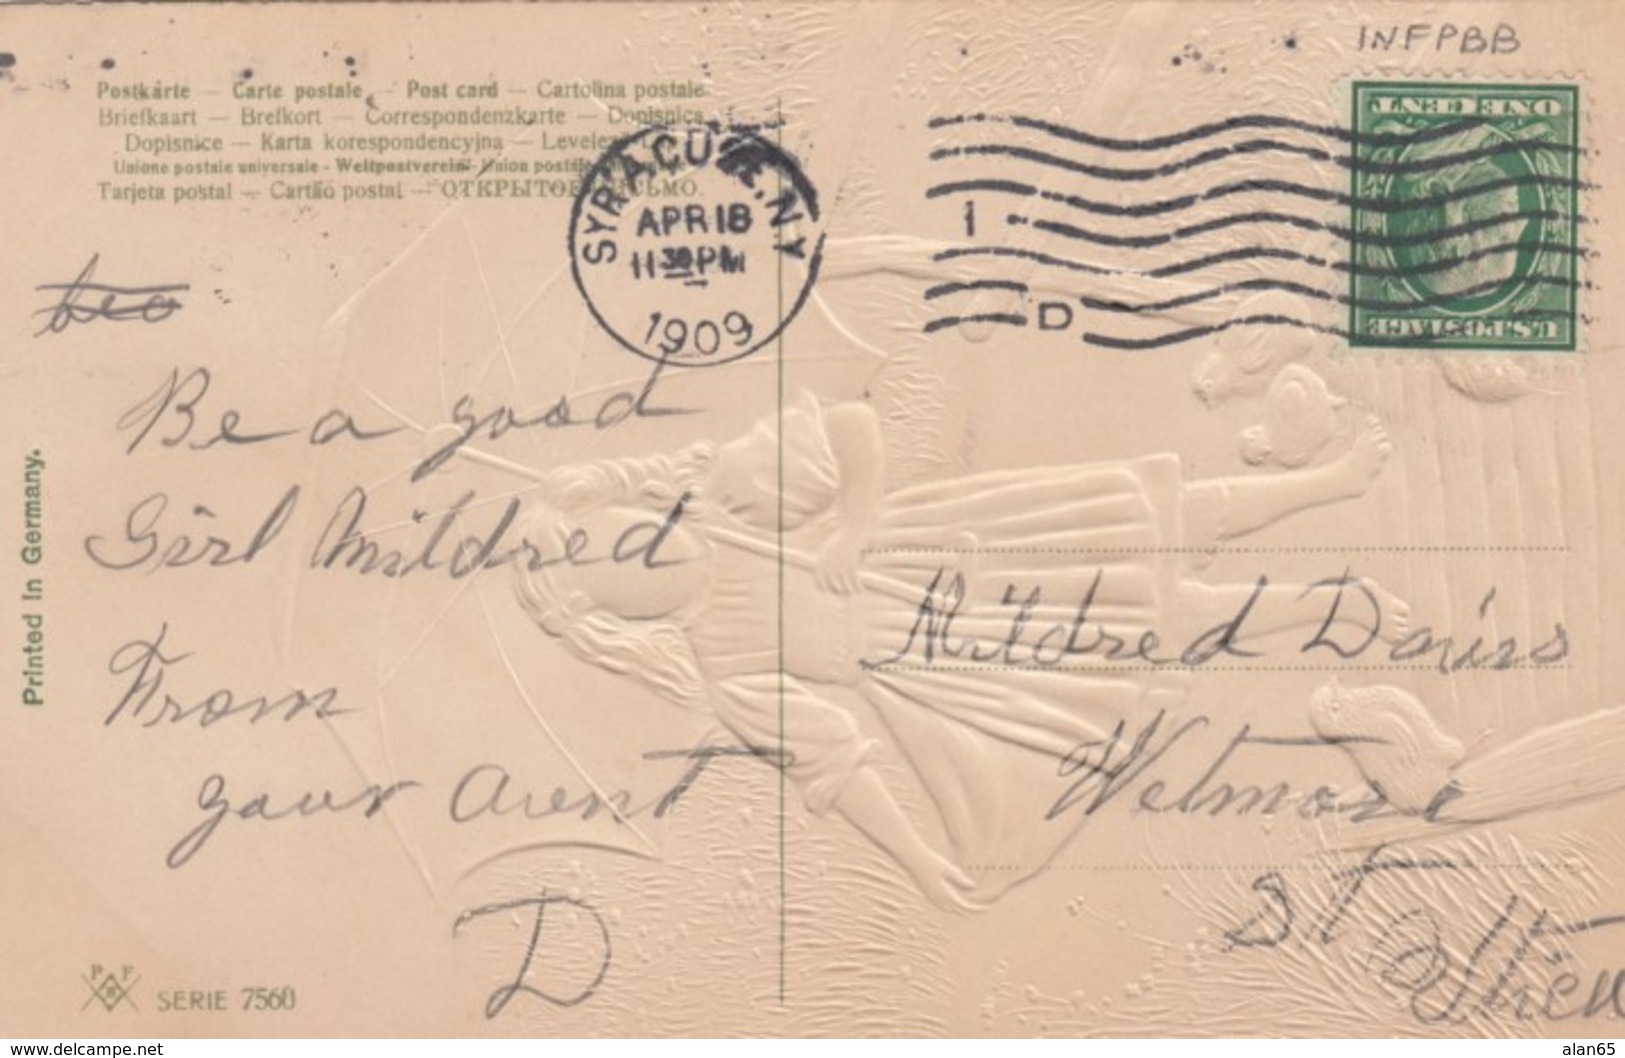 INFPBB
Postkarte — Carte postale — Post card — Cartolina postale
Briefkaart — Brefkort — Correspondenzkarte — Dopisnica
Dopisnice — Karta korespondencyjna —
Unione postale universale - Weltpostverein - Union
Tarjeta postal — Cartão postal —
SYRACUSE, N.Y.
APR 18
11 30 PM
1909
1
D
ONE CENT
U.S. POSTAGE
Be a good
Girl Mildred
From
your Aunt
D
Mildred
Wetmore
St
Printed in Germany.
P F
B
SERIE 7560
www.delcampe.net
alan65